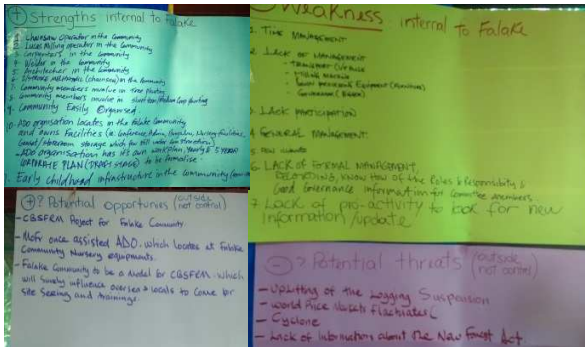 + Strengths internal to Falake
1. Chainsaw operator in the Community
2. Lucas Milling operator in the Community
3. Carpenters in the Community
4. Welder in the Community
5. Architecture in the Community
7. Community members involve in Tree planting
8. Community members involve in
9. Community Easily Organised
10. ADO organisation locates in the Falake Community
and owns Facilities (ie Conference,
storeroom storage
- ADO organisation has its own workplan, yearly & 5 years
CORPORATE PLAN (DRAFT STAGE) to be formalise
Early childhood infrastructure in the Community
+? Potential opportunies (outside, not control)
- CBSFRM Project for Falake Community.
- MoFr once assisted ADO, which locates at Falake
Community Nursery equipments.
- Falake Community to be a Model for CBSFRM, which
will surely influence oversea & locals to come for
site seeing and trainings.
Weakness internal to Falake
1. TIME MANAGEMENT
2. LACK OF MANAGEMENT
- TRANSPORT/VEHICLE
- MILLING MACHINE
3. LACK PARTICIPATION
4. GENERAL MANAGEMENT
6. LACK OF FORMAL MANAGEMENT,
RECORDING, KNOW HOW of the Roles & Responsibility &
Good Governance Information for Committee members
7. Lack of pro-activity to look for new
information/update
-? Potential threats (outside, not control)
- Uplifting of the Logging Suspension
- World Price Markets
- Cyclone
- Lack of Information about the New Forest Act